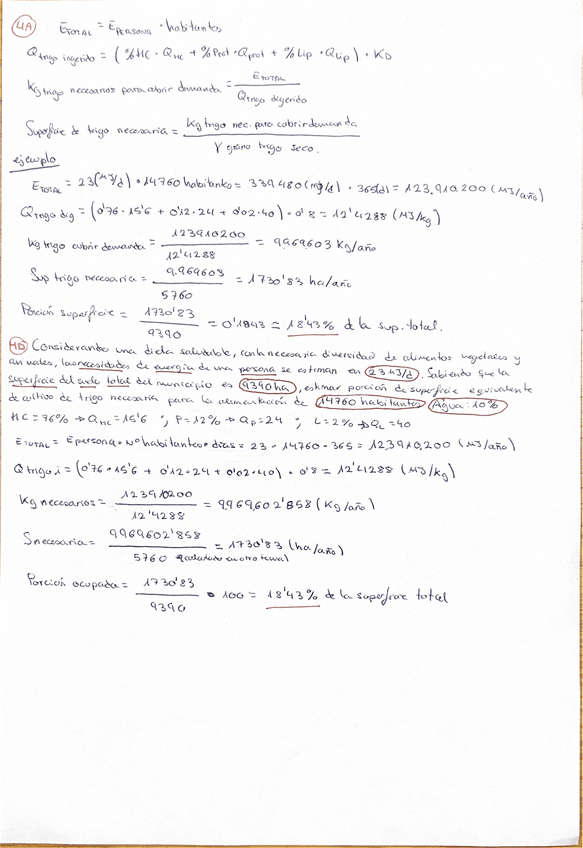 4A ETOTAL = EPERSONA · habitantes
Qtrigo ingerido = (%HC · QHC + %Prot · Qprot + %Lip · QLip) · KD
Kg trigo necesarios para cubrir demanda = ETOTAL / Qtrigo digerido
Superficie de trigo necesaria = Kg trigo nec. para cubrir demanda / Y grano trigo seco.
ejemplo
ETOTAL = 23 (MJ/d) · 14760 habitantes = 339480 (MJ/d) · 365(d) = 123.910.200 (MJ/año)
Qtrigo dig = (0'76 · 15'6 + 0'12 · 24 + 0'02 · 40) · 0'8 = 12'4288 (MJ/kg)
Kg trigo cubrir demanda = 123910200 / 12'4288 = 9.969.603 Kg/año
Sup trigo necesaria = 9.969603 / 5760 = 1730'83 ha/año
Porción superficie = 1730'83 / 9390 = 0'1843 = 18'43% de la sup. total.
4D Considerando una dieta saludable, con la necesaria diversidad de alimentos vegetales y
animales, las necesidades de energía de una persona se estiman en 23 MJ/d. Sabiendo que la
superficie del suelo total del municipio es 9390 ha, estimar porción de superficie equivalente
de cultivo de trigo necesaria para la alimentación de 14760 habitantes Agua: 10%
HC = 76% → QHC = 15'6 ; P = 12% → QP = 24 ; L = 2% → QL = 40
ETOTAL = Epersona · Nº habitantes · días = 23 · 14760 · 365 = 123.910.200 (MJ/año)
Qtrigo i = (0'76 · 15'6 + 0'12 · 24 + 0'02 · 40) · 0'8 = 12'4288 (MJ/kg)
Kg necesarios = 123910200 / 12'4288 = 9969.602'858 (Kg/año)
Snecesaria = 9969602'858 / 5760 = 1730'83 (ha/año)
calculado en otro
Porción ocupada = 1730'83 / 9390 · 100 = 18'43% de la superficie total